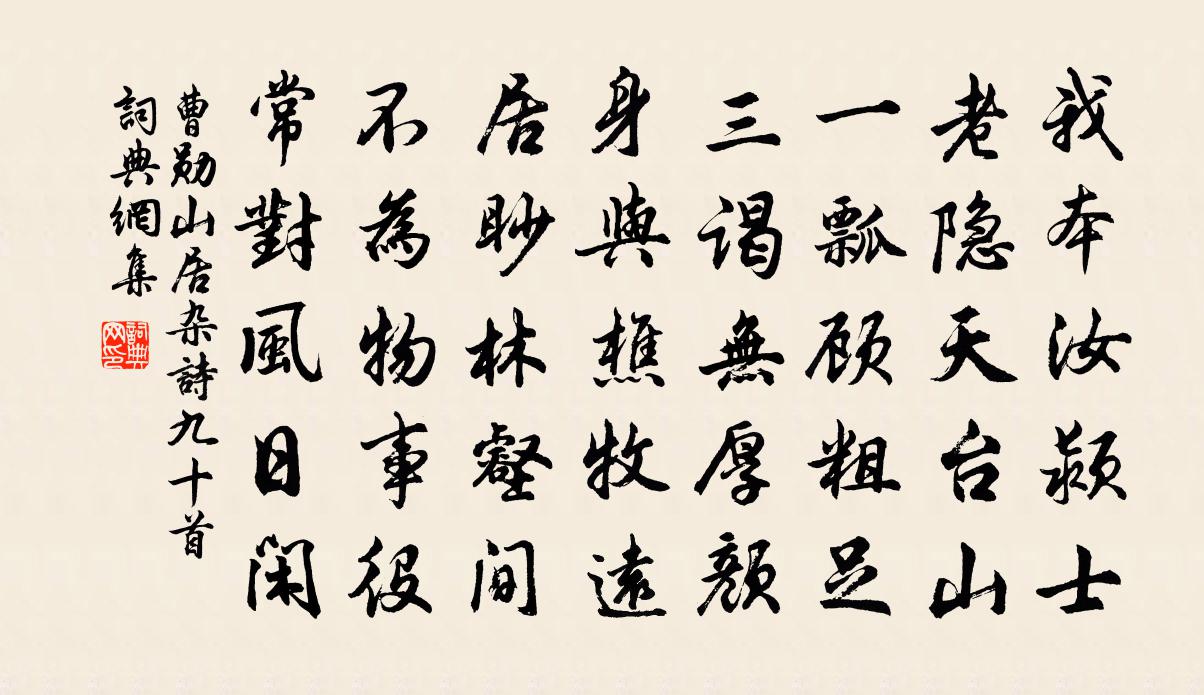 我本汝潁士
老隐天台山
一瓢顾粗足
三谒無厚顏
身與樵牧遠
居眇林壑間
不為物事役
常對風日闲
曹勛山居杂詩九十首
詞典網集
詞典网印